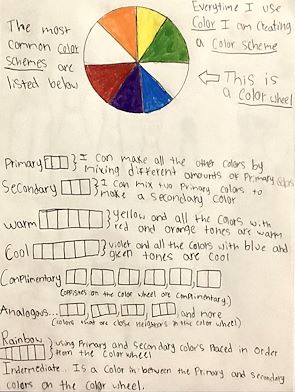 The most
common color
schemes are
listed below
Everytime I use
Color I am creating
a color scheme
This is
a color wheel
Primary } I can make all the other colors by
mixing different amounts of Primary colors
Secondary } I can mix two Primary colors to
make a secondary color
warm } yellow and all the colors with
red and orange tones are warm
Cool } violet and all the colors with blue and
green tones are cool
Complimentary
(opposites on the color wheel are complimentary)
Analogous... and more
(colors that are close neighbors in the color wheel)
Rainbow } using Primary and Secondary colors Placed in order
from the Color wheel
Indermediate.. Is a color in between the Primary and secondary
colors on the color wheel.